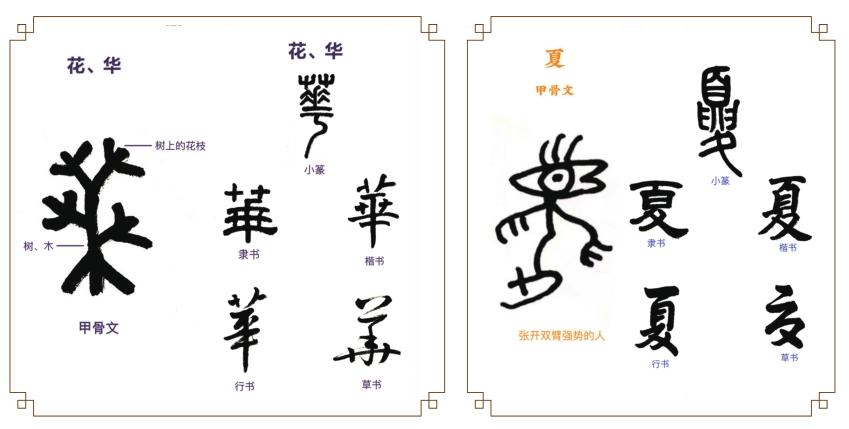 花、华
树上的花枝
树、木
甲骨文
花、华
華
小篆
華
隶书
華
楷书
華
行书
華
草书
夏
甲骨文
张开双臂强势的人
夏
小篆
夏
隶书
夏
楷书
夏
行书
夏
草书